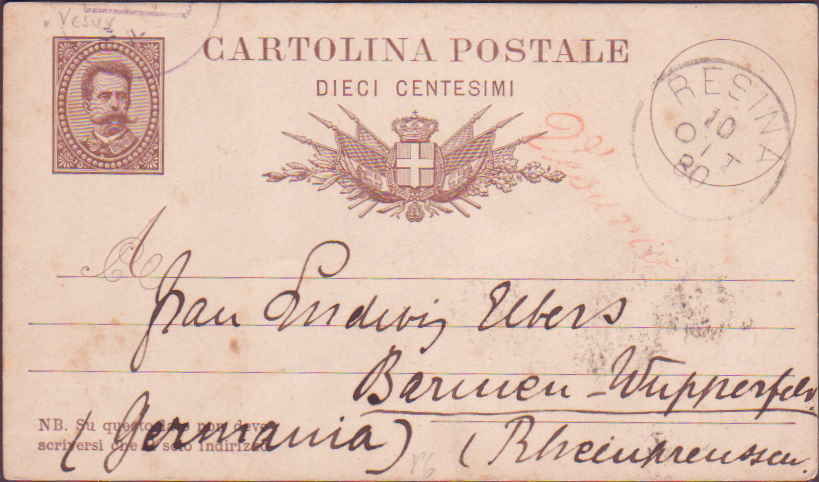 CARTOLINA POSTALE
DIECI CENTESIMI
RESINA
10
OTT
80
A
Frau Ludwig Ebers
Barmen-Wupperfeld
NB. Su questo lato non deve
scriversi che il solo indirizzo.
(Germania) (Rheinpreussen.